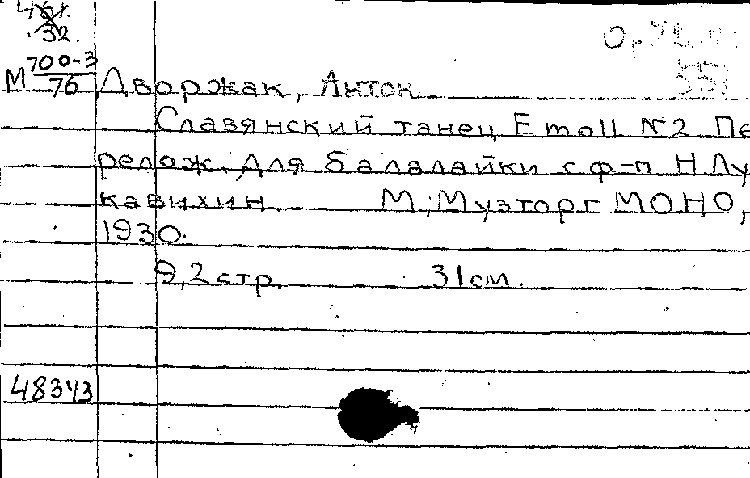 32
М 700-3
76
Дворжак, Антон
Славянский танец E moll №2 Пе
релож. для балалайки с ф-п Н Лу
кавихин М.; Музторг МОНО,
1930.
9,2 стр. 31 см.
48343